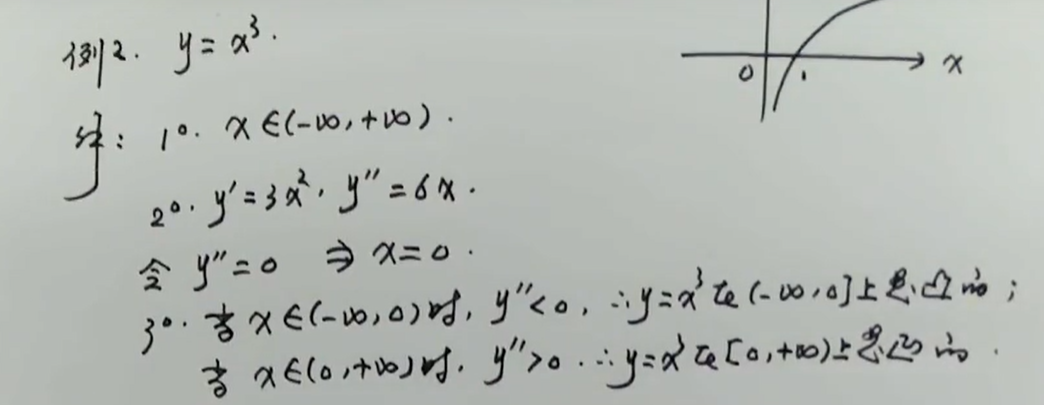 例2. y = x³.
0 1 x
解: 1°. x∈(-∞, +∞).
2°. y' = 3x², y'' = 6x.
令 y'' = 0 ⇒ x = 0.
3°. 当 x∈(-∞, 0)时, y'' < 0, ∴ y = x³ 在 (-∞, 0] 上是凸的;
当 x∈(0, +∞)时, y'' > 0. ∴ y = x³ 在 [0, +∞) 上是凹的.